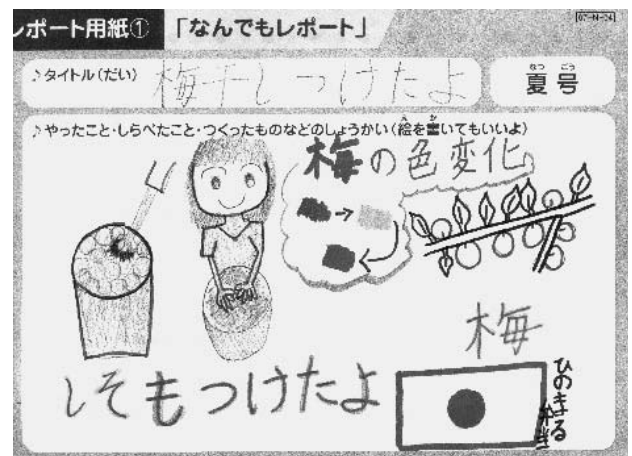 レポート用紙① 「なんでもレポート」
07-N-04
♪タイトル(だい) 梅干しつけたよ
なつ ごう
夏号
♪やったこと・しらべたこと・つくったものなどのしょうかい(絵を書いてもいいよ)
え か
梅の色変化
梅
しそもつけたよ
ひのまる
弁当